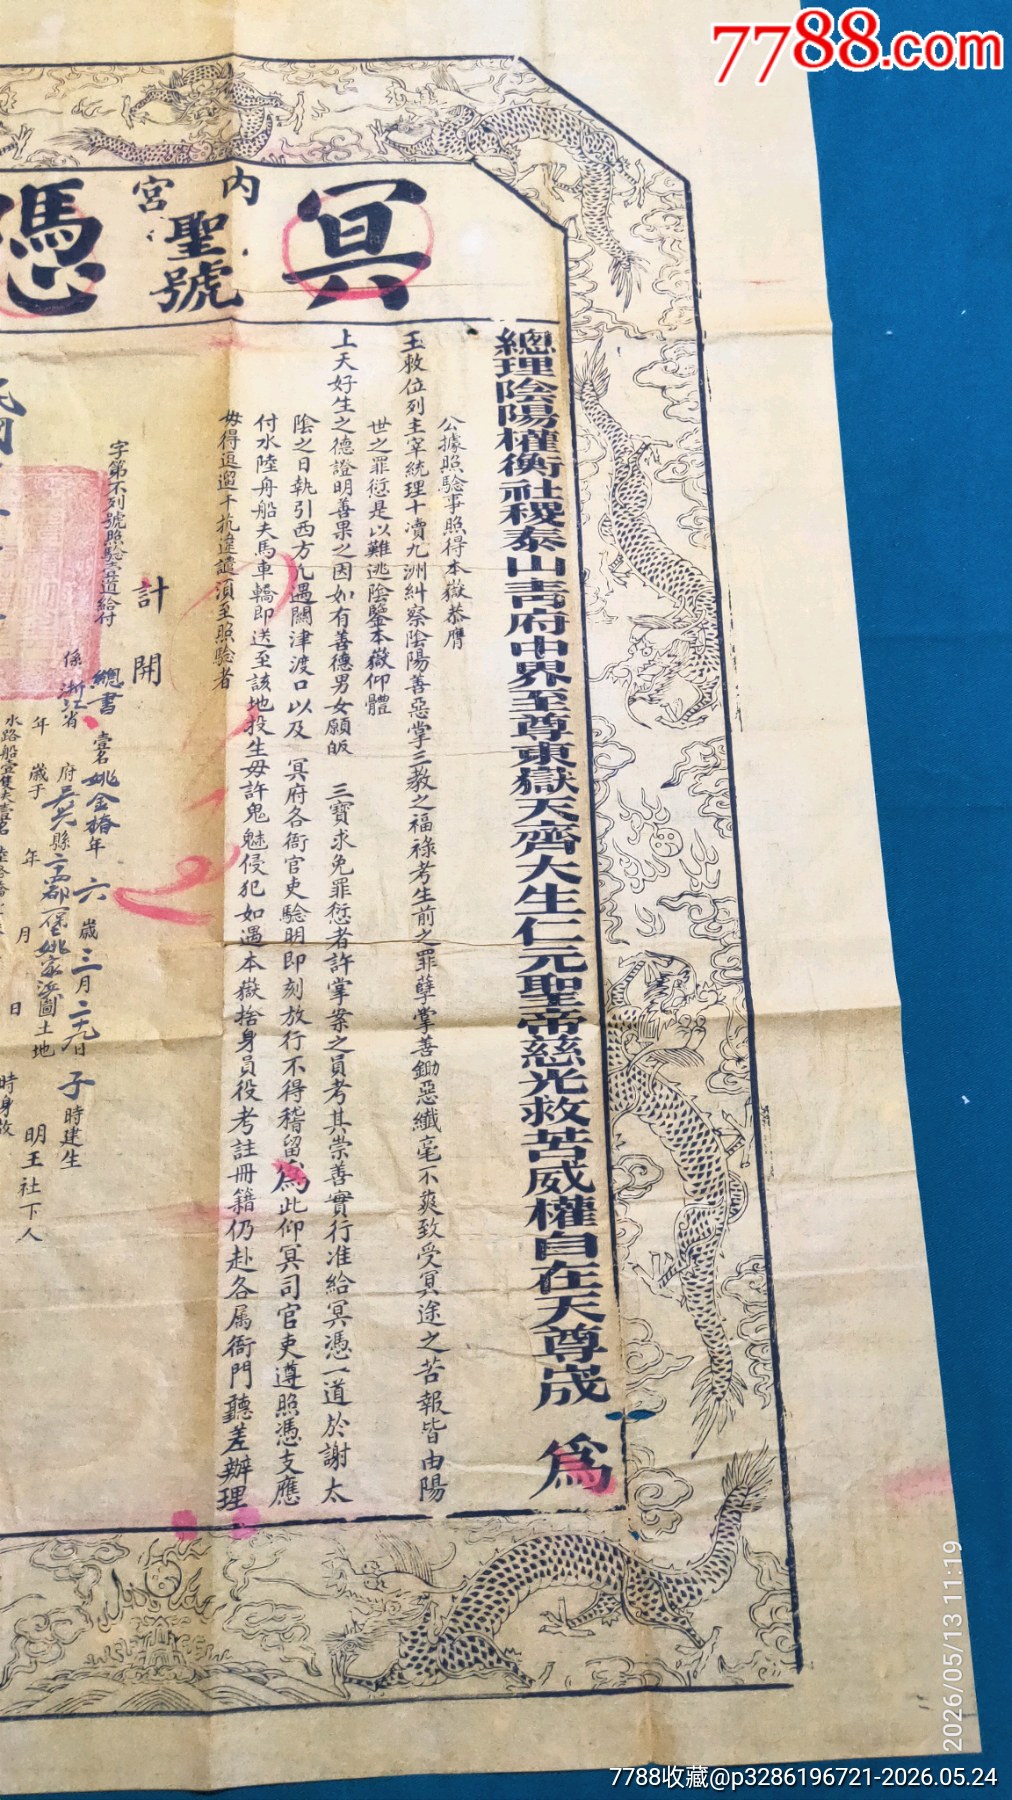 7788.com
冥
內宮
聖號
憑
總理陰陽權衡社稷泰山青府中界至尊東嶽天齊大生仁元聖帝慈光救苦威權自在天尊宬 為
公據照驗事照得本嶽恭膺
玉敕位列主宰統理十凟九洲糾察陰陽善惡掌三教之福祿考生前之罪孽掌善鋤惡纖毫不爽致受冥途之苦報皆由陽
世之罪愆是以難逃陰鑒本嶽仰體
上天好生之德證明善果之因如有善德男女願皈 三寶求免罪愆者許掌案之員考其崇善實行准給冥憑一道於謝太
陰之日執引西方凢遇關津渡口以及 冥府各衙官吏驗明即刻放行不得稽留為此仰冥司官吏遵照憑支應
付水陸舟船夫馬車轎即送至該地投生毋許鬼魅侵犯如遇本嶽捨身員役考註冊籍仍赴各属衙門聽差辦理
毋得遲遛干抗違譴須至照驗者
計開
字第不列號照驗壹道給付 總書 壹名姚金椿年六歲三月二九日子時建生
係浙江省 府吳興縣 都一堡姚家浜圖土地 明王社下人
年 歲于 年 月 日 時身故
水路船壹隻
民國
7788收藏@p3286196721-2026.05.24
2026/05/13 11:19